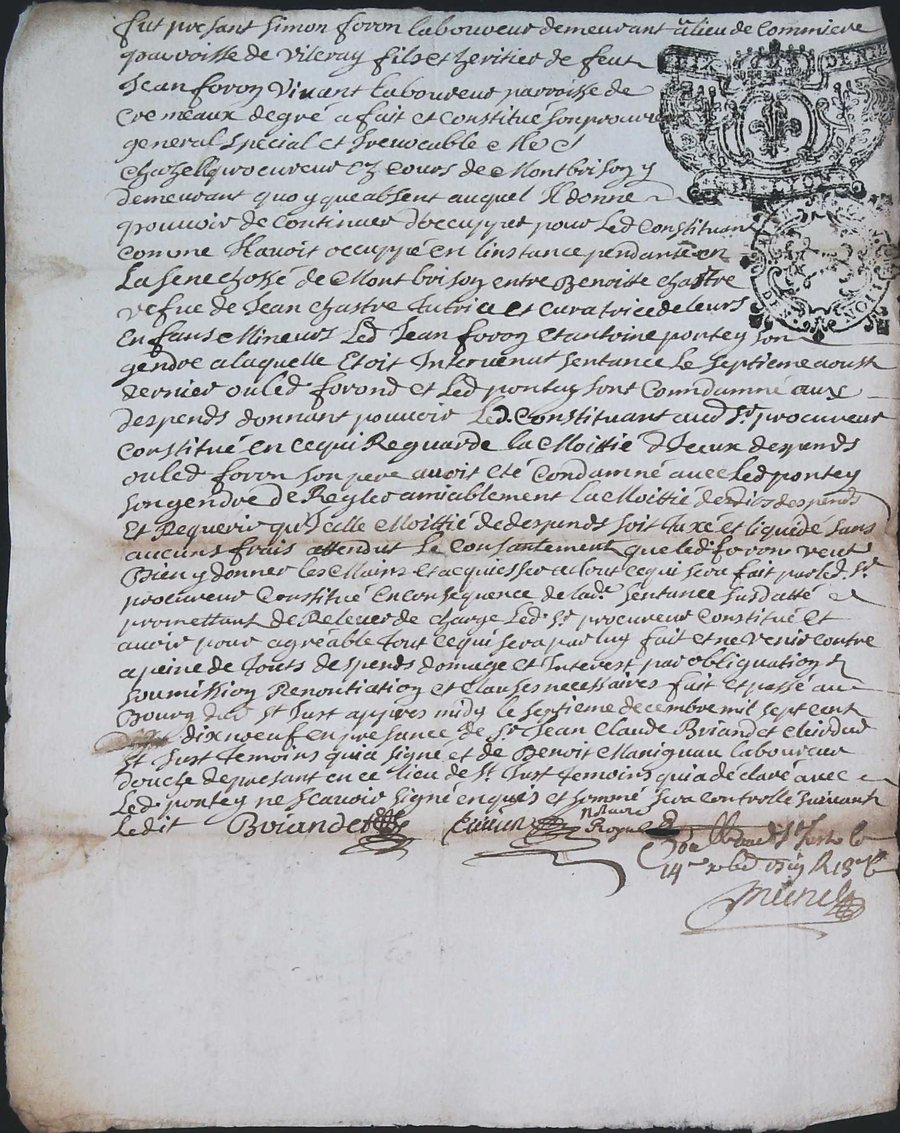 fut presant Simon foron laboureur demeurant a lieu de Commiere
parroisse de Vileray fils et heritier de feut
Jean foron Vivant laboureur parroisse de
Cremeaux de gré a fait et Constitué son procureur
general special et Irrevocable Me
Chazelle procureur ez Cours de Montbrison y
demeurant quoy que absent auquel Il donne
pouvoir de Continuer d'occupper pour Led Constituant
comme Il avoit occuppé en linstance pendante en
La Senechossé de Montbrison entre Benoitte Chastre
vefue de Jean Chastre tutrice et Curatrice de leurs
Enfans Mineurs Led Jean foron et antoine pontey son
gendre a laquelle Etoit Intervenut Sentance Le Septieme aoust
dernier ou led forond et Led pontey sont Comdamné aux
despends donnant pouvoir Led Constituant aud Sr procureur
Constitué en ce qui Reguarde la Moittié d'Iceux despends
ou led foron son pere avoit eté Condamné avec Led pontey
son gendre de Regler amiablement la Moittié desdits despends
Et Requerir qu'Icelle Moittié de despends soit taxé et liquidé sans
aucuns frais attendut Le Consantement que led foron veut
Bien y donner les Mains et acquiesser a tout ce qui sera fait par led Sr
procureur Constitué en consequence de lade Sentance susdatté et
promettant de Relever de charge Led Sr procureur Constitué et
avoir pour agréable tout ce qui sera par luy fait et ne venir contre
a peine de touts despends domage et Interest par obliguation
soumission Renontiation et Clauses necessaires fait et passé au
Bourg dud St Just appres midy le septieme decembre mil sept cent
dix noeuf en presance de Sr Jean Claude Briandet dud
St Just temoins qui a signé et de Benoit Maniguau laboureur
de presant en ce lieu de St Just temoins qui a declaré avec
Led pontey ne scavoir signé enquis et sommé sera Controllé Suivant
Ledit Briandet Notaire
Royal
St Just le
14e
DIX DENIERS
LYON